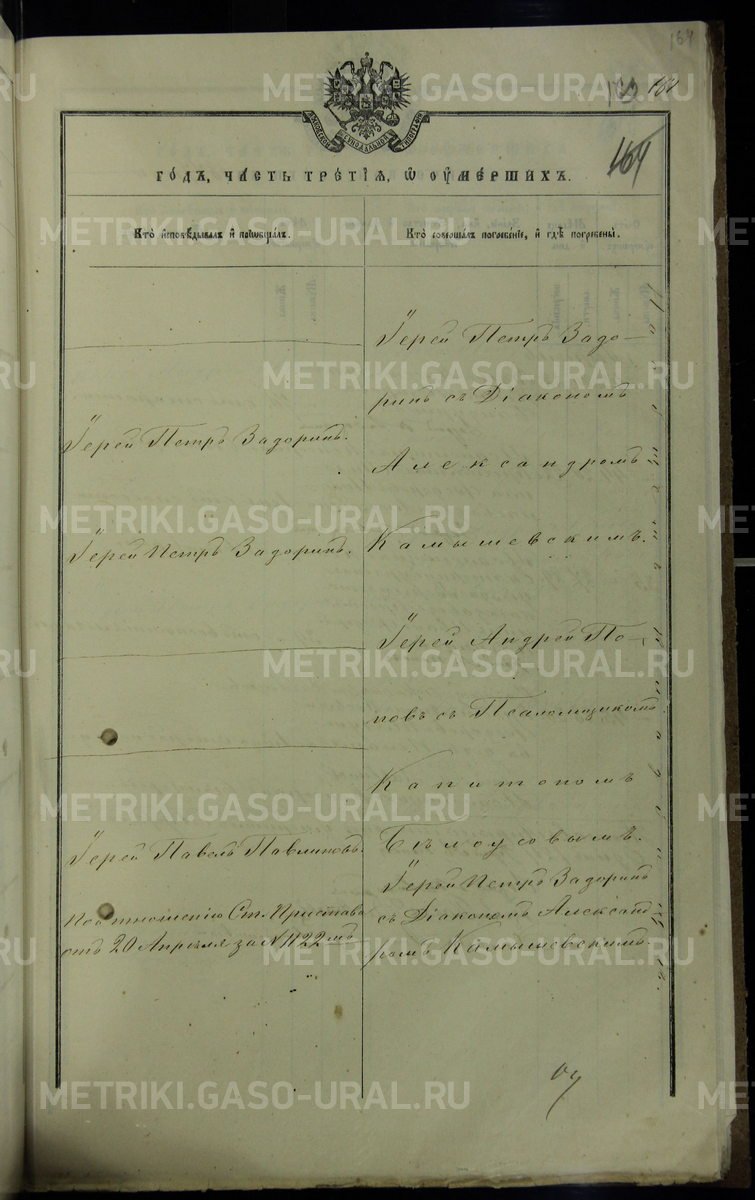 164
164
164
МОСКОВСКОЙ СѴНОДАЛЬНОЙ ТИПОГРАФІИ
ГОДЪ, ЧАСТЬ ТРЕТІЯ, Ѡ ОУМЕРШИХЪ.
Кто исповѣдывалъ и пріобщалъ.
Іерей Петръ Задоринъ.
Іерей Петръ Задоринъ.
Іерей Павелъ Павлиновъ.
По отношенію Ст. Пристава
отъ 20 Апреля за № 1122мъ
Кто совершалъ погребеніе, и гдѣ погребены.
Іерей Петръ Задо-
ринъ съ Діакономъ
Александромъ
Камышевскимъ.
Іерей Андрей По-
повъ съ Псаломщикомъ
Капитономъ
Бѣлоусовымъ.
Іерей Петръ Задоринъ
съ Діакономъ Александ
ромъ Камышевскимъ.
METRIKI.GASO-URAL.RU
METRIKI.GASO-URAL.RU
METRIKI.GASO-URAL.RU
METRIKI.GASO-URAL.RU
METRIKI.GASO-URAL.RU
METRIKI.GASO-URAL.RU
METRIKI.GASO-URAL.RU
METRIKI.GASO-URAL.RU